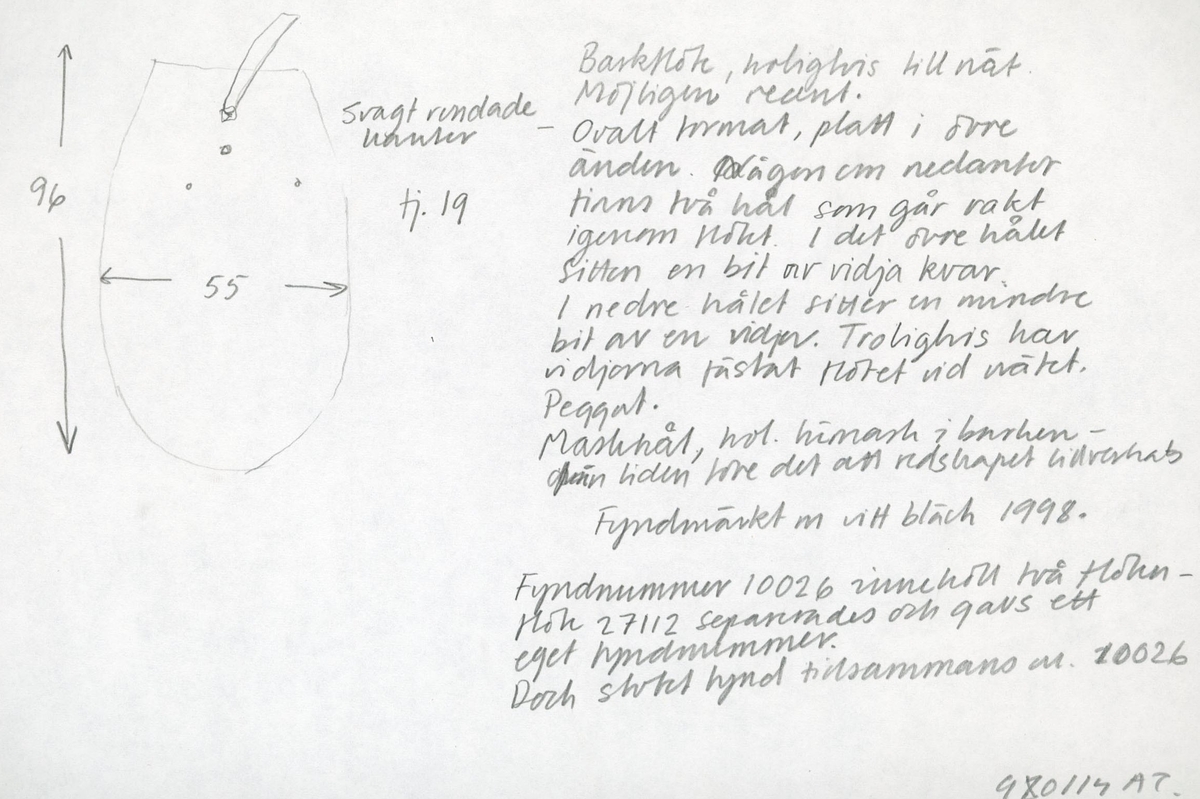 96
55
Svagt rundade
kanter
tj. 19
Barkflöte, troligtvis till nät.
Möjligen recent.
- Ovalt format, platt i övre
änden. Någon cm nedanför
finns två hål som går rakt
igenom flötet. I det övre hålet
sitter en bit av vidja kvar.
I nedre hålet sitter en mindre
bit av en vidja. Troligtvis har
vidjorna fästat flötet vid nätet.
Peggat.
Maskhål, trol. hunnash i barken -
från tiden före det att redskapet tillverkats
Fyndmärkt m vitt bläck 1998.
Fyndnummer 10026 innehöll två flöten -
flöte 27112 separerades och gavs ett
eget fyndnummer.
Dock slutet fynd tillsammans m. 10026
980114 AT.